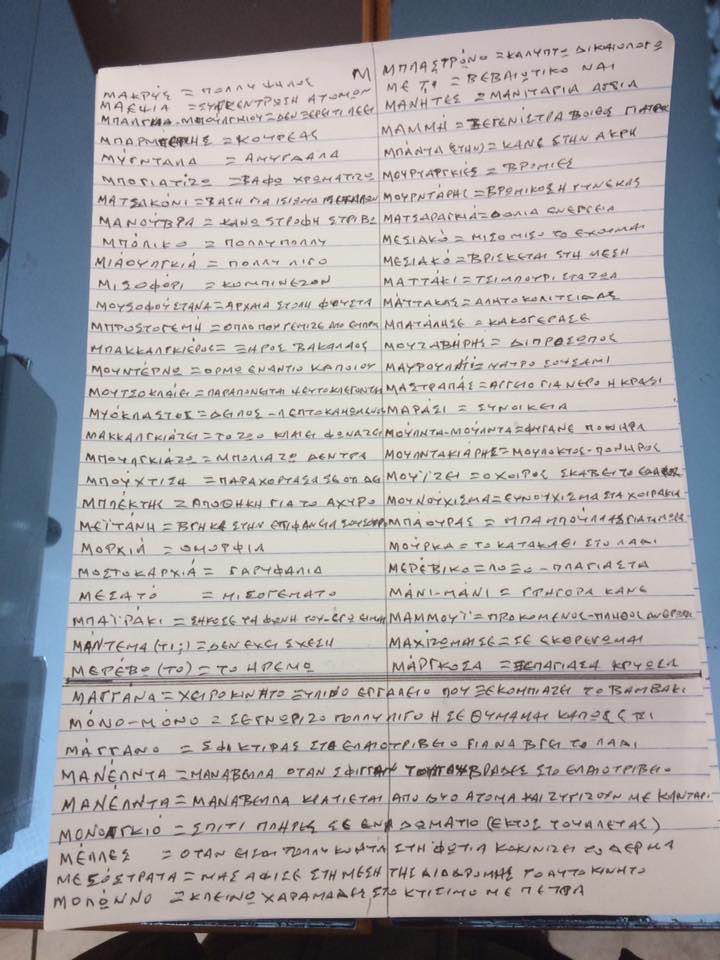 Μ
ΜΑΚΡΥΣ = ΠΟΛΛΥ ΨΗΛΟΣ
ΜΑΕΨΙΑ = ΣΥΓΚΕΝΤΡΩΣΗ ΑΤΟΜΩΝ
ΜΠΑΛΓΚΙΑ-ΜΠΟΥΛΓΚΙΟΥ = ΔΕΝ ΞΕΡΕΙ ΤΙ ΛΕΕΙ
ΜΠΑΡΜΠΕΡΗΣ = ΚΟΥΡΕΑΣ
ΜΥΓΝΤΑΛΑ = ΑΜΥΓΔΑΛΑ
ΜΠΟΓΙΑΤΙΖΩ = ΒΑΦΩ ΧΡΩΜΑΤΙΖΩ
ΜΑΤΣΑΚΟΝΙ = ΒΑΣΗ ΓΙΑ ΙΣΙΩΜΑ ΜΕΤΑΛΛΩΝ
ΜΑΝΟΥΒΡΑ = ΚΑΝΩ ΣΤΡΟΦΗ ΣΤΡΙΒΩ
ΜΠΟΛΙΚΟ = ΠΟΛΛΥ ΠΟΛΛΥ
ΜΙΑΟΥΛΓΚΙΑ = ΠΟΛΛΥ ΛΙΓΟ
ΜΙΣΟΦΟΡΙ = ΚΟΜΠΙΝΕΖΟΝ
ΜΟΥΣΟΦΟΥΣΤΑΝΑ = ΑΡΧΑΙΑ ΣΤΟΛΗ ΦΟΥΣΤΑ
ΜΠΡΟΣΤΟΓΕΜΗ = ΟΠΛΟ ΠΟΥ ΓΕΜΙΖΕ ΑΠΟ ΕΜΠΡΟΣ
ΜΠΑΚΚΑΛΓΚΙΕΡΟΣ = ΞΗΡΟΣ ΒΑΚΑΛΑΟΣ
ΜΟΥΝΤΕΡΝΩ = ΟΡΜΩ ΕΝΑΝΤΙΟ ΚΑΠΟΙΟΥ
ΜΟΥΤΣΟΚΛΑΙΕΙ = ΠΑΡΑΠΟΝΕΤΑΙ ΨΕΥΤΟΚΛΕΓΟΝΤΑΣ
ΜΥΟΚΛΑΣΤΟΣ = ΔΕΙΛΟΣ -
ΜΑΚΚΑΛΓΚΙΑΖΕΙ = ΤΟ ΖΩΟ ΚΛΑΙΕΙ ΦΩΝΑΖΕΙ
ΜΠΟΥΛΓΚΙΑΖΩ = ΜΠΟΛΙΑΖΩ ΔΕΝΤΡΑ
ΜΠΟΥΧΤΙΣΑ = ΠΑΡΑΧΟΡΤΑΣΑ
ΜΠΛΕΚΤΗΣ = ΑΠΟΘΗΚΗ ΓΙΑ ΤΟ ΑΧΥΡΟ
ΜΕΪΤΑΝΗ = ΒΓΗΚΕ ΣΤΗΝ ΕΠΙΦΑΝΕΙΑ
ΜΟΡΧΙΑ = ΟΜΟΡΦΙΑ
ΜΟΣΤΟΚΑΡΧΙΑ = ΓΑΡΥΦΑΛΙΑ
ΜΕΣΑΤΟ = ΜΙΣΟΓΕΜΑΤΟ
ΜΠΑΪΡΑΚΙ = ΣΗΚΟΣΕ ΤΗ ΦΩΝΗ ΤΟΥ-ΕΓΩ ΕΙΜΑΙ
ΜΑΝΤΕΜΑ (ΤΙ;) = ΔΕΝ ΕΧΕΙ ΣΧΕΣΗ
ΜΕΡΕΒΩ (ΤΟ) = ΤΟ ΗΡΕΜΩ
ΜΠΛΑΣΤΡΩΝΩ = ΚΑΛΥΠΤΩ ΔΙΚΑΙΟΛΟΓΩ
ΜΕ ΤΙ = ΒΕΒΑΙΩΤΙΚΟ ΝΑΙ
ΜΑΝΗΤΕΣ = ΜΑΝΙΤΑΡΙΑ ΑΓΡΙΑ
ΜΑΜΜΗ = ΞΕΓΕΝΙΣΤΡΑ ΒΟΙΘΟΣ ΓΙΑΤΡΟΣ
ΜΠΑΝΤΑ (ΣΤΗΝ) = ΚΑΝΕ ΣΤΗΝ ΑΚΡΗ
ΜΟΥΡΤΑΡΓΚΙΕΣ = ΒΡΟΜΙΕΣ
ΜΟΥΡΝΤΑΡΗΣ = ΒΡΩΜΙΚΟΣ Η ΓΥΝΕΚΑΣ
ΜΑΤΣΑΡΑΓΚΙΑ = ΔΟΛΙΑ ΕΝΕΡΓΕΙΑ
ΜΕΣΙΑΚΟ = ΜΙΣΟ ΜΙΣΟ ΤΟ ΕΧΟΥΜΑΙ
ΜΕΣΙΑΚΟ = ΒΡΙΣΚΕΤΑΙ ΣΤΗ ΜΕΣΗ
ΜΑΤΤΑΚΙ = ΤΣΙΜΠΟΥΡΙ ΣΤΑ ΖΩΑ
ΜΑΤΤΑΚΑΣ = ΑΛΗΤΟΚΟΛΙΤΣΙΔΑΣ
ΜΠΑΤΑΛΗΣΕ = ΚΑΚΟΓΕΡΑΣΕ
ΜΟΥΖΑΒΗΡΗΣ = ΔΙΠΡΟΣΩΠΟΣ
ΜΑΥΡΟΥΛΑΤΖΙ = ΜΑΥΡΟ ΣΟΥΣΑΜΙ
ΜΑΣΤΡΑΠΑΣ = ΑΓΓΕΙΟ ΓΙΑ ΝΕΡΟ Η ΚΡΑΣΙ
ΜΑΡΑΣΙ = ΣΥΝΟΙΚΕΙΑ
ΜΟΥΛΝΤΑ-ΜΟΥΛΝΤΑ = ΦΥΓΑΝΕ ΠΟΝΗΡΑ
ΜΟΥΛΝΤΑΚΙΑΡΗΣ = ΜΟΥΛΟΚΤΟΣ-ΠΟΝΗΡΟΣ
ΜΟΥΪΖΕΙ = Ο ΧΟΙΡΟΣ ΣΚΑΒΕΙ ΤΟ ΕΔΑΦΟΣ
ΜΟΥΝΟΥΧΙΣΜΑ = ΕΥΝΟΥΧΙΣΜΑ ΣΤΑ ΧΟΙΡΑΚΙΑ
ΜΠΑΟΥΡΑΣ = ΜΠΑΜΠΟΥΛΑΣ ΓΙΑ ΤΑ ΜΩΡΑ
ΜΟΥΡΚΑ = ΤΟ ΚΑΤΑΚΑΘΙ ΣΤΟ ΛΑΔΙ
ΜΕΡΕΒΙΚΟ = ΛΟΞΟ-ΠΛΑΓΙΑΣΤΑ
ΜΑΝΙ-ΜΑΝΙ = ΓΡΗΓΟΡΑ ΚΑΝΕ
ΜΑΜΜΟΥΪ = ΠΡΟΚΟΜΕΝΟΣ-ΠΛΗΘΟΣ ΑΝΘΡΩΠΩΝ
ΜΑΧΙΖΩΜΑΙ ΣΕ = ΣΕ ΕΧΘΡΕΥΩΜΑΙ
ΜΑΡΓΚΟΣΑ = ΞΕΠΑΓΙΑΣΑ ΚΡΥΩΣΑ
ΜΑΓΓΑΝΑ = ΧΕΙΡΟΚΙΝΗΤΟ ΞΥΛΙΝΟ ΕΡΓΑΛΕΙΟ ΠΟΥ ΞΕΚΟΜΠΙΑΖΕΙ ΤΟ ΒΑΜΒΑΚΙ
ΜΟΝΟ-ΜΟΝΟ = ΣΕ ΓΝΩΡΙΖΟ ΠΟΛΛΥ ΛΙΓΟ Η ΣΕ ΘΥΜΑΜΑΙ ΚΑΠΩΣ ΕΤΣΙ
ΜΑΓΓΑΝΟ = ΣΦΙΚΤΙΡΑΣ ΣΤΟ ΕΛΑΙΟΤΡΙΒΕΙΟ ΓΙΑ ΝΑ ΒΓΕΙ ΤΟ ΛΑΔΙ
ΜΑΝΕΛΝΤΑ = ΜΑΝΑΒΕΛΛΑ ΟΤΑΝ ΣΦΙΓΓΑΝ ΣΤΟ ΕΛΑΙΟΤΡΙΒΕΙΟ
ΜΑΝΕΛΝΤΑ = ΜΑΝΑΒΕΛΛΑ ΚΡΑΤΙΕΤΑΙ ΑΠΟ ΔΥΟ ΑΤΟΜΑ ΚΑΙ ΖΥΓΙΖΟΥΝ ΜΕ ΚΑΝΤΑΡΙ
ΜΟΝΟΓΚΙΟ = ΣΠΙΤΙ ΠΛΗΡΕΣ ΣΕ ΕΝΑ ΔΩΜΑΤΙΟ (ΕΚΤΟΣ ΤΟΥΑΛΕΤΑΣ)
ΜΕΛΛΕΣ = ΟΤΑΝ ΕΙΣΑΙ ΠΟΛΛΥ ΚΟΝΤΑ ΣΤΗ ΦΩΤΙΑ ΚΟΚΙΝΙΖΕΙ ΤΟ ΔΕΡΜΑ
ΜΕΣΟΣΤΡΑΤΑ = ΜΑΣ ΑΦΙΣΕ ΣΤΗ ΜΕΣΗ ΤΗΣ ΔΙΑΔΡΟΜΗΣ ΤΟ ΑΥΤΟΚΙΝΗΤΟ
ΜΟΛΩΝΝΟ = ΚΛΕΙΝΩ ΧΑΡΑΜΑΔΕΣ ΣΤΟ ΚΤΙΣΙΜΟ ΜΕ ΠΕΤΡΑ